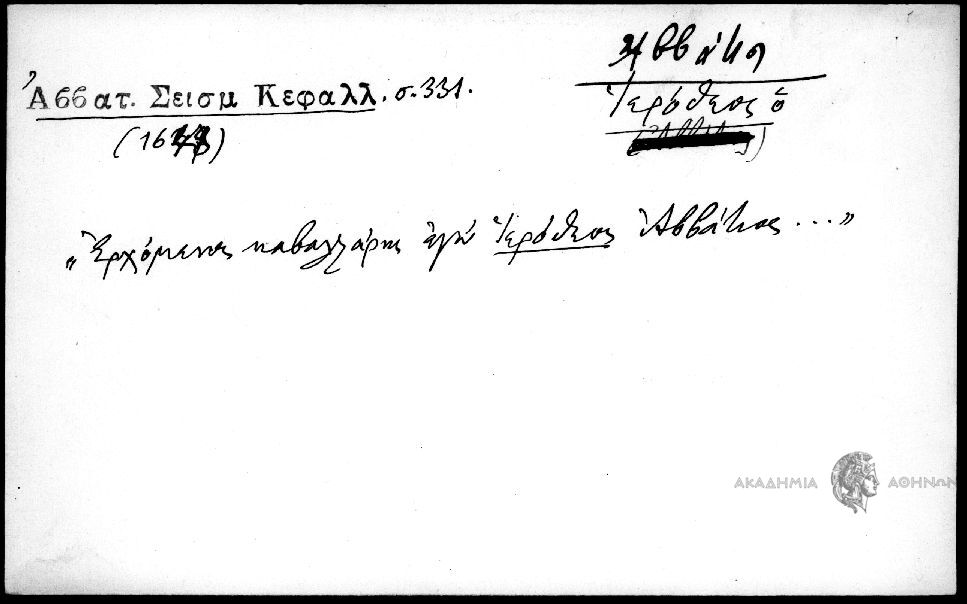 Ἀββάτιος
Ἀββατ. Σεισμ Κεφαλλ. σ. 331.
Ἱερόθεος ὁ
„Ἐρχόμενος καβαλλάρης ἐγὼ Ἱερόθεος Ἀββάτιος ..."
ΑΚΑΔΗΜΙΑ ΑΘΗΝΩΝ